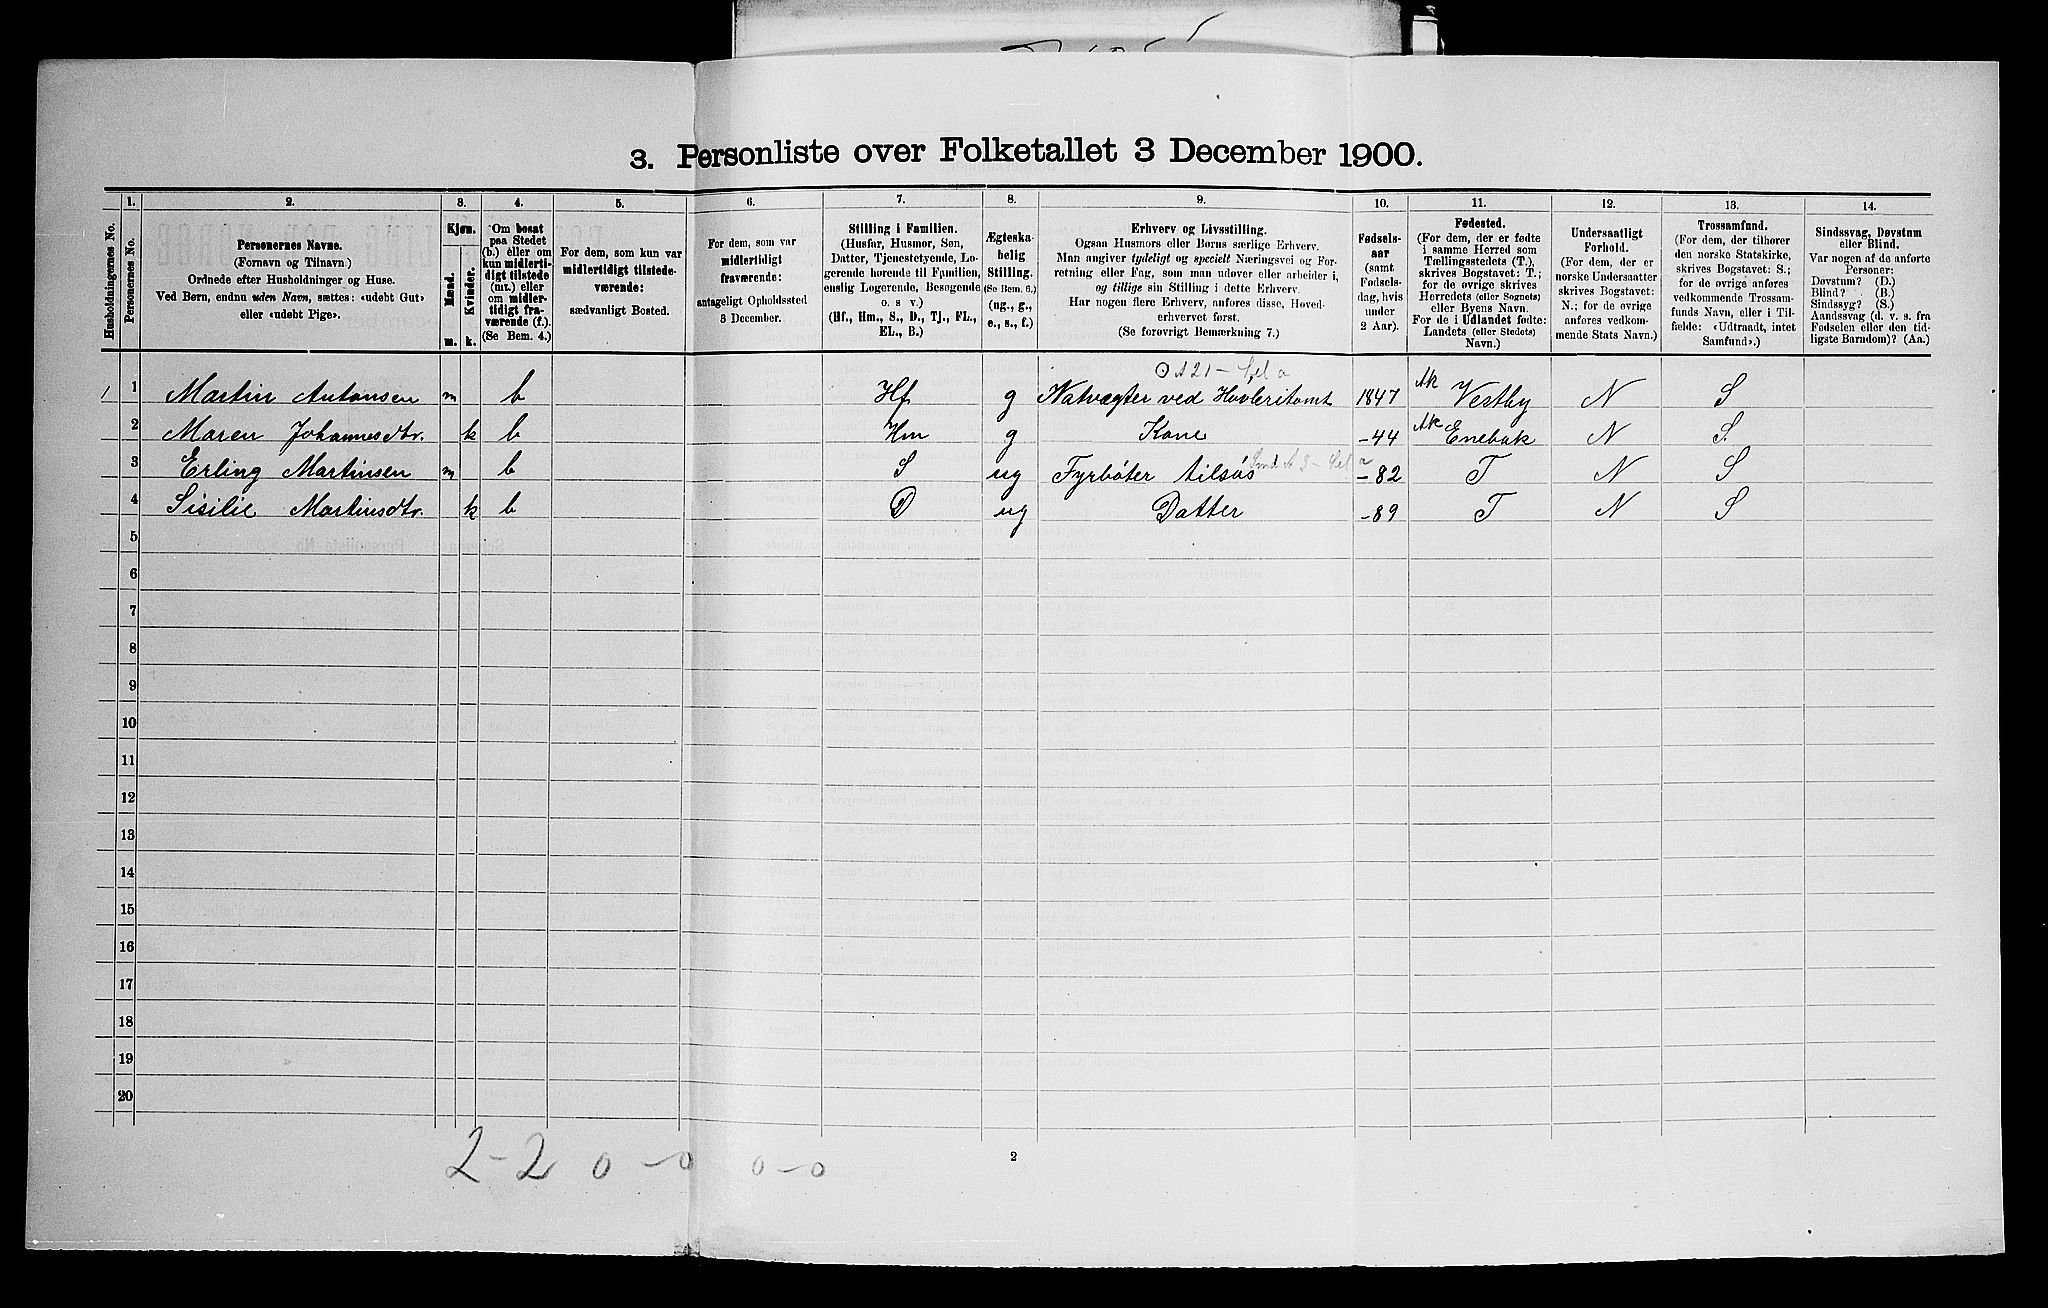 3. Personliste over Folketallet 3 December 1900.
1. 2. 3. 4. 5. 6. 7. 8. 9. 10. 11. 12. 13. 14.
Husholdningernes No.
Personernes No.
Personernes Navne.
(Fornavn og Tilnavn)
Ordnede efter Husholdninger og Huse.
Ved Børn, endnu uden Navn, sættes: «udøbt Gut»
eller «udøbt Pige».
Kjøn.
Mænd.
Kvinder.
m. k.
Om bosat
paa Stedet
(b.) eller om
kun midlerti-
digt tilstede
(mt.) eller
om midler-
tidigt fra-
værende (f.)
(Se Bem. 4.)
For dem, som kun var
midlertidigt tilstede-
værende:
sædvanligt Bosted.
For dem, som var
midlertidigt
fraværende:
antageligt Opholdssted
3 December.
Stilling i Familien.
(Husfar, Husmor, Søn,
Datter, Tjenestetyende, Lo-
gerende hørende til Familien,
enslig Logerende, Besøgende
o. s v.)
(Hf., Hm., S., D., Tj., FL.,
EL., B.)
Ægteska-
belig
Stilling.
(Se Bem. 6.)
(ug., g.,
e., s., f.)
Erhverv og Livsstilling.
Ogsaa Husmors eller Børns særlige Erhverv.
Man angiver tydeligt og specielt Næringsvei og For-
retning eller Fag, som man udøver eller arbeider i,
og tillige sin Stilling i dette Erhverv.
Har nogen flere Erhverv, anføres disse, Hoved-
erhvervet først.
(Se forøvrigt Bemærkning 7.)
Fødsels-
aar
(samt
Fødsels-
dag, hvis
under
2 Aar).
Fødested.
(For dem, der er fødte
i samme Herred som
Tællingsstedets (T.),
skrives Bogstavet: T.;
for de øvrige skrives
Herredets (eller Sognets)
eller Byens Navn.
For de i Udlandet fødte:
Landets (eller Stedets)
Navn.)
Undersaatligt
Forhold.
(For dem, der er
norske Undersaatter
skrives Bogstavet:
N.; for de øvrige
anføres vedkom-
mende Stats Navn.)
Trossamfund.
(For dem, der tilhører
den norske Statskirke,
skrives Bogstavet: S.;
for de øvrige anføres
vedkommende Trossam-
funds Navn, eller i Til-
fælde: «Udtraadt, intet
Samfund».)
Sindssvag, Døvstum
eller Blind.
Var nogen af de anførte
Personer:
Døvstum? (D.)
Blind? (B.)
Sindssyg? (S.)
Aandssvag (d. v. s. fra
Fødselen eller den tid-
ligste Barndom)? (Aa.)
1 1 Martin Antonsen m b Hf g Natvægter ved Høvleritomt 1847 Ak Vestby N S
2 Maren Johannesdtr. k b Hm g Kone -44 Ak Enebak N S.
3 Erling Martinsen m b S ug Fyrbøter tilsøs -82 T N S
4 Sisilie Martinsdtr. k b D ug Datter -89 T N S
5
6
7
8
9
10
11
12
13
14
15
16
17
18
19
20
2-2 0-0 0-0
2